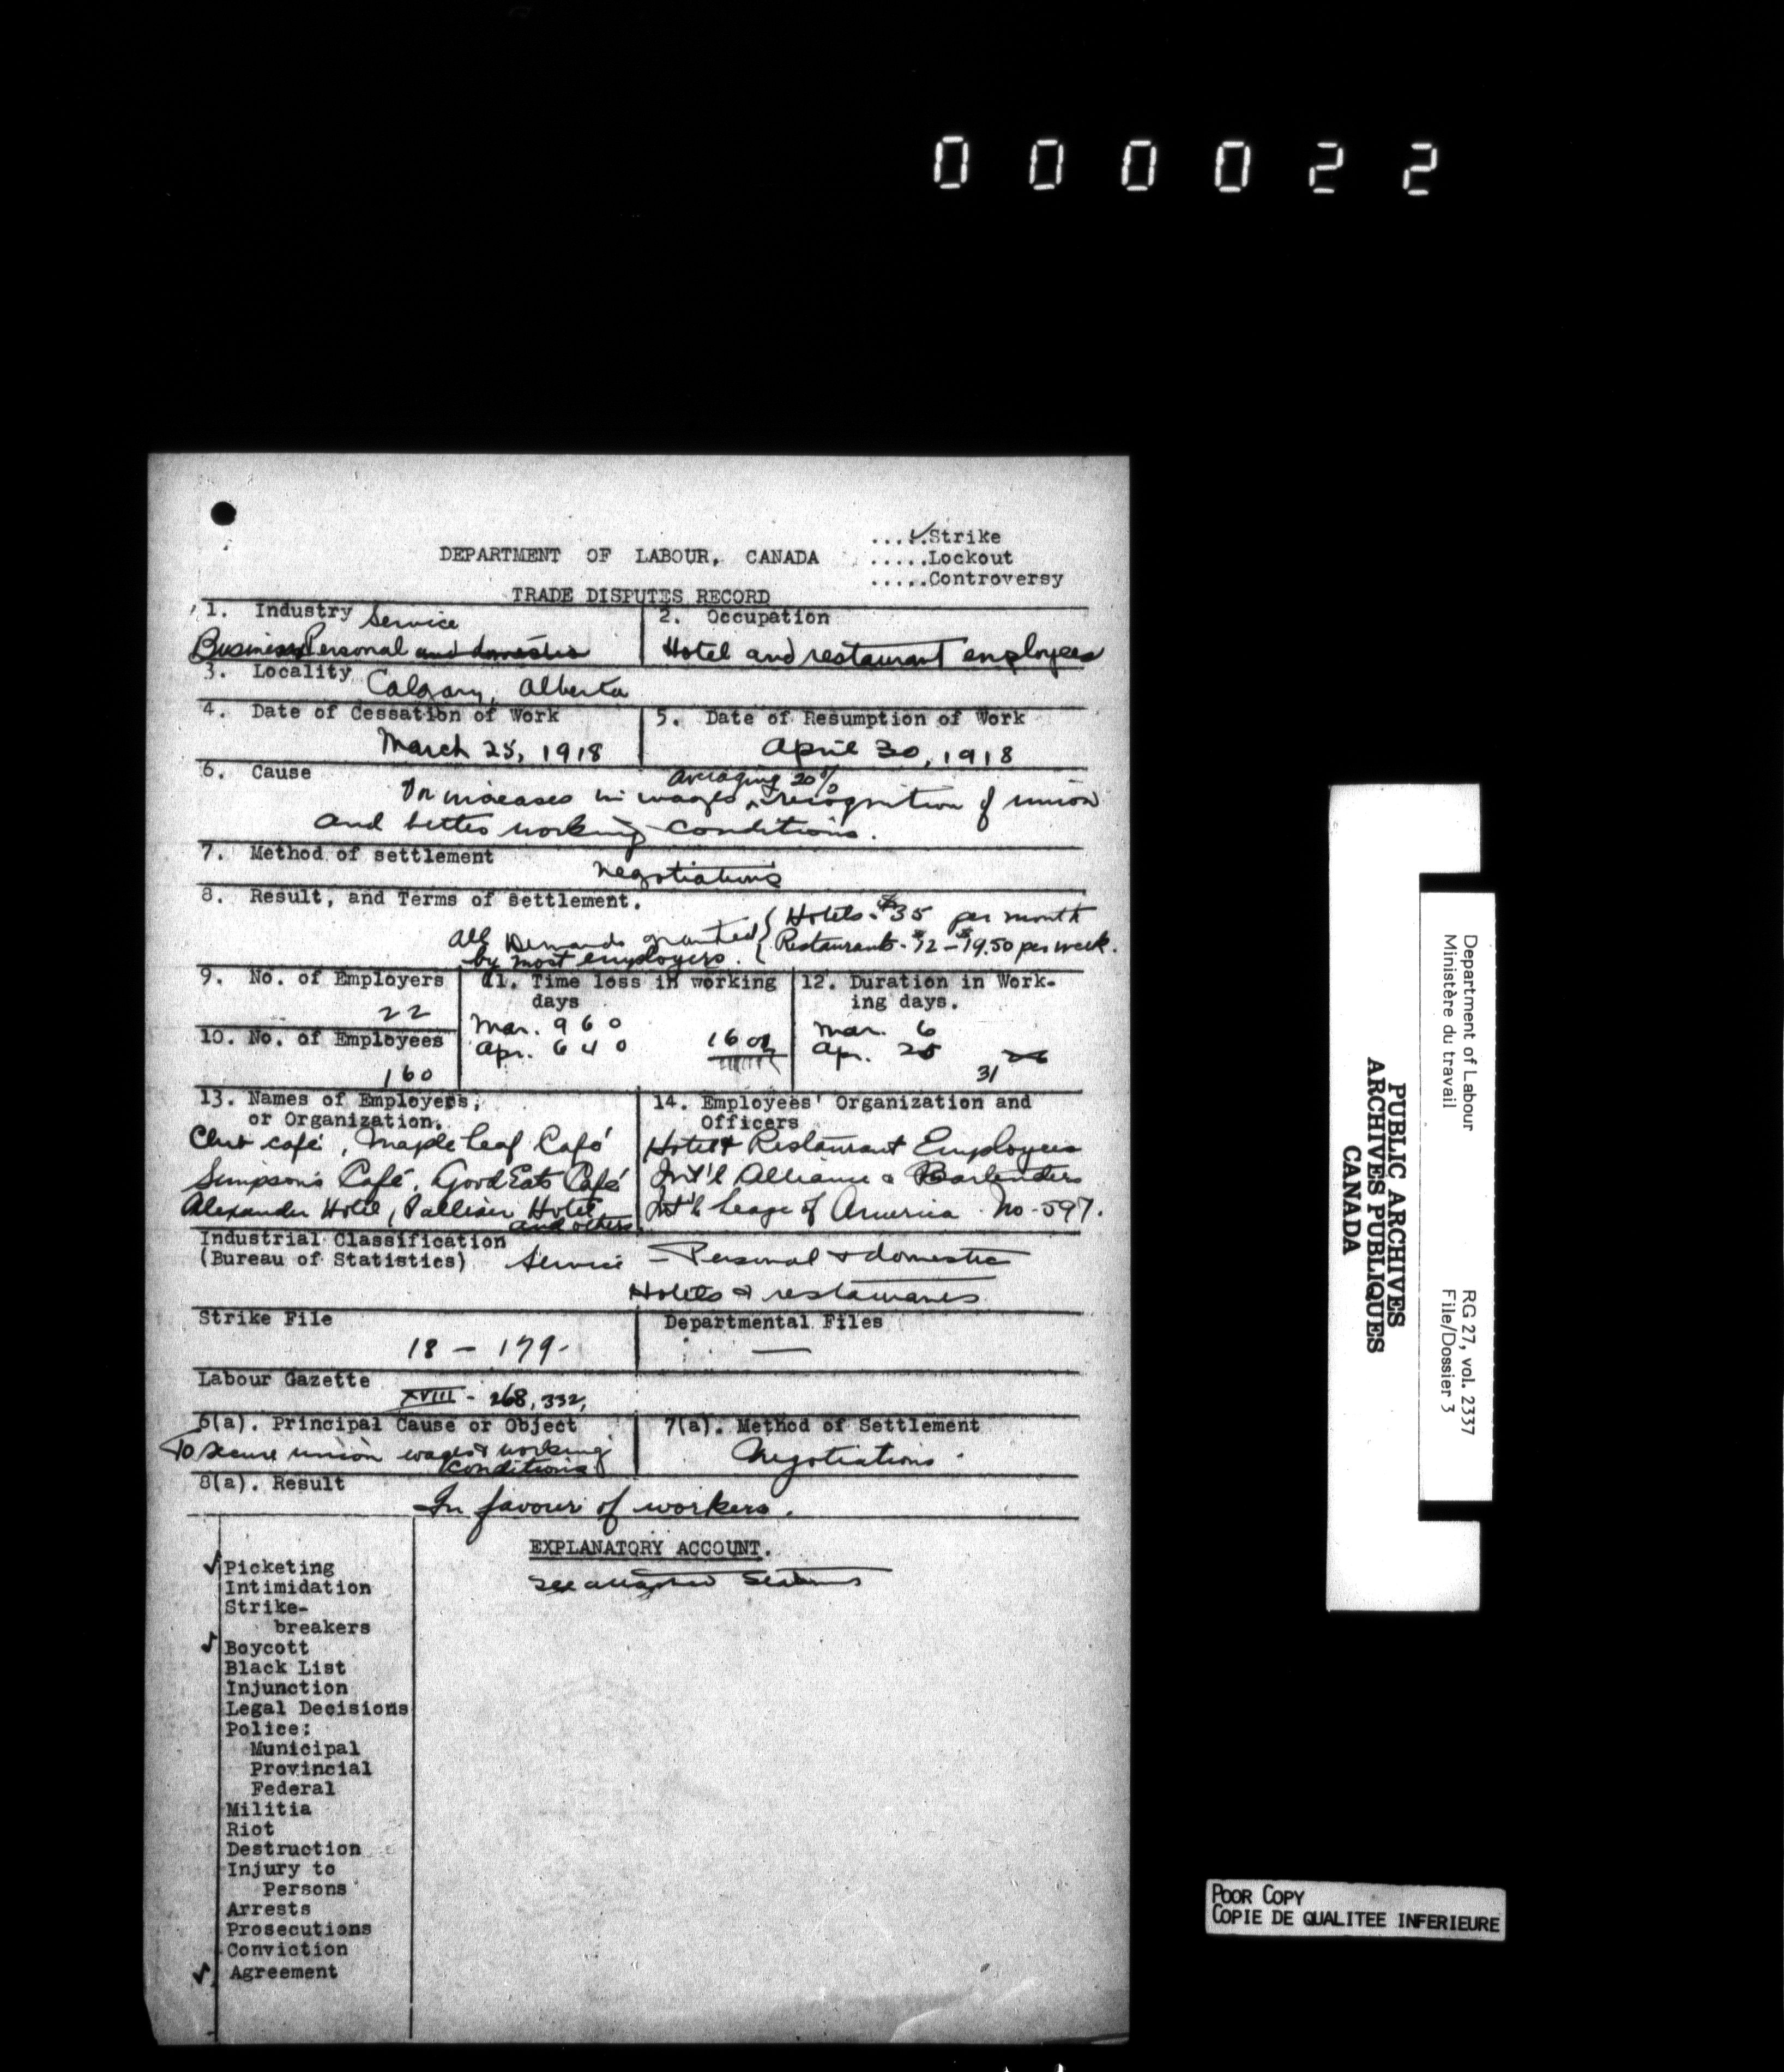 000022
....✓.Strike
DEPARTMENT OF LABOUR, CANADA .....Lockout
.....Controversy
TRADE DISPUTES RECORD
1. Industry Service 2. Occupation
Business Personal and domestic Hotel and restaurant employees
3. Locality Calgary, Alberta
4. Date of Cessation of Work 5. Date of Resumption of Work
March 25, 1918 April 30, 1918
6. Cause averaging 20%
For increases in wages, recognition of union
and better working conditions.
7. Method of settlement
Negotiations
8. Result, and Terms of settlement.
All Demands granted { Hotels - $35 per month
by most employers. { Restaurants - $12 - $19.50 per week.
9. No. of Employers 11. Time loss in working 12. Duration in Work-
days ing days.
22 Mar. 960 Mar. 6
10. No. of Employees Apr. 640 1600 Apr. 25
160 31
13. Names of Employers, 14. Employees' Organization and
or Organization. Officers
Club café, Maple Leaf Café Hotel & Restaurant Employees
Simpson's Café, Good Eats Café Int'l Alliance & Bartenders
Alexander Hotel, Palliser Hotel, Int'l League of America No. 597.
and others.
Industrial Classification
(Bureau of Statistics) Service - Personal & domestic
Hotels & restaurants
Strike File Departmental Files
18 - 179. —
Labour Gazette
XVIII - 268, 332,
6(a). Principal Cause or Object 7(a). Method of Settlement
To secure union wages & working Negotiations.
conditions
8(a). Result
In favour of workers.
EXPLANATORY ACCOUNT.
See attached
✓ Picketing
Intimidation
Strike-
breakers
✓ Boycott
Black List
Injunction
Legal Decisions
Police:
Municipal
Provincial
Federal
Militia
Riot
Destruction
Injury to
Persons
Arrests
Prosecutions
Conviction
✓ Agreement
Department of Labour RG 27, vol. 2337
Ministère du travail File/Dossier 3
PUBLIC ARCHIVES
ARCHIVES PUBLIQUES
CANADA
POOR COPY
COPIE DE QUALITEE INFERIEURE